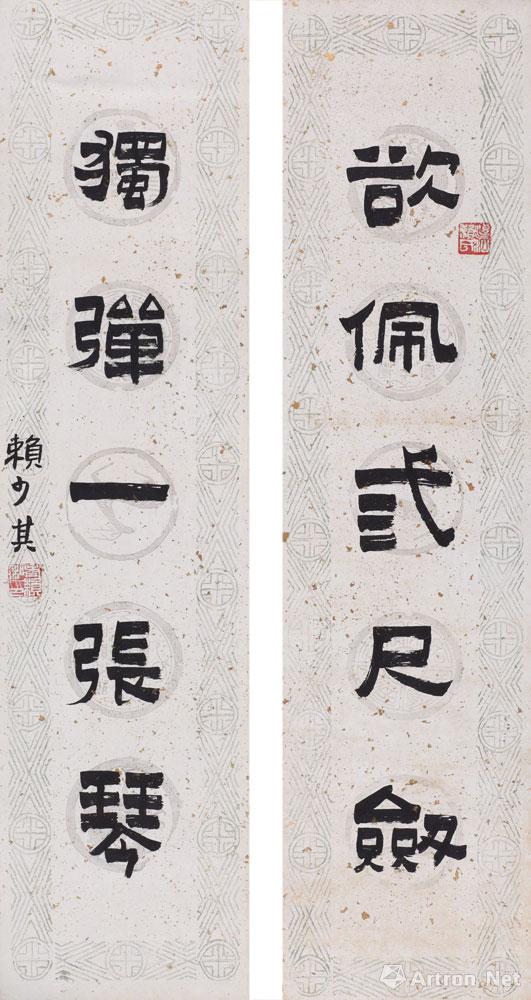 欲佩弎尺劒
獨彈一張琴
賴少其
Artron.Net